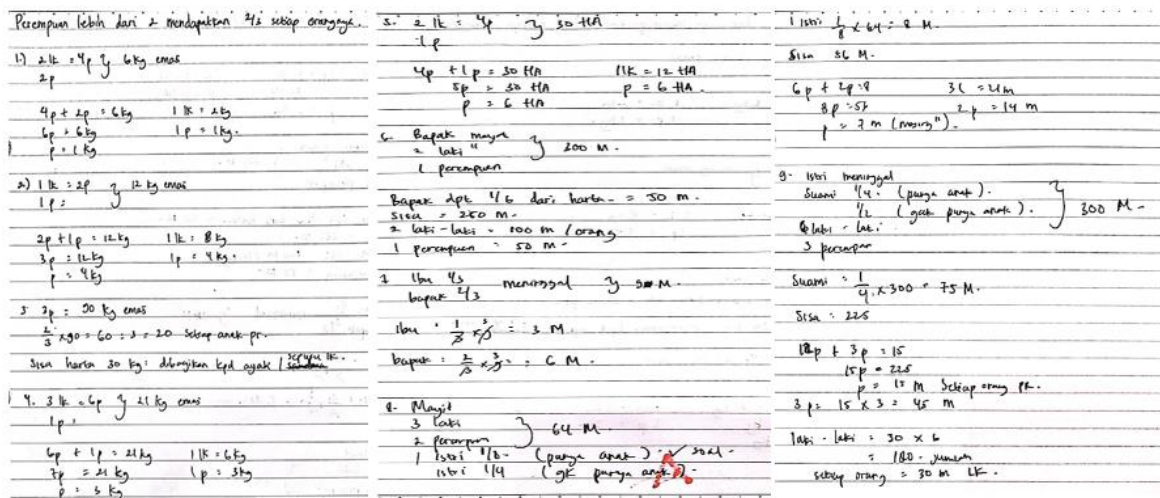 Perempuan lebih dari 2 mendapatkan 2/3 setiap orangnya.
1.) 2 lk = 4p } 6 kg emas
2p
4p + 2p = 6 kg 1 lk = 2 kg
6p = 6 kg 1 p = 1 kg.
p = 1 kg
2) 1 lk = 2p } 12 kg emas
1 p =
2p + 1p = 12 kg 1 lk = 8 kg
3p = 12 kg 1 p = 4 kg.
p = 4 kg
3p = 90 kg emas
2/3 x 90 = 60 : 3 = 20 setiap anak pr.
Sisa harta 30 kg : dibagikan kpd ayah / sepupu lk.
4. 3 lk = 6p } 21 kg emas
1 p =
6p + 1p = 21 kg 1 lk = 6 kg
7p = 21 kg 1 p = 3 kg
p = 3 kg
5. 2 lk = 4p } 30 HA
1 p
4p + 1p = 30 HA 1 lk = 12 HA
5p = 30 HA p = 6 HA.
p = 6 HA
6. Bapak
2 laki"
1 perempuan } 300 M.
Bapak dpt 1/6 dari harta = 50 m.
Sisa = 250 m.
2 laki-laki = 100 m / orang
1 perempuan = 50 m.
7. Ibu 1/3 meninggal } M.
bapak 2/3
Ibu = 1/3 x = 3 M
bapak = 2/3 x = 6 M.
8. Mayit
3 laki
2 perempuan } 64 M.
1 istri 1/8 (punya anak) ✓ soal
istri 1/4 (gk punya anak).
1 istri 1/8 x 64 = 8 M.
Sisa 56 M.
6p + 2p =
8p = 2 p = 14 m
p = 7 m (masing").
9. Istri meninggal
Suami 1/4. (punya anak).
1/2 (gak punya anak). } 300 M.
6 laki - laki
3 perempuan
Suami = 1/4 x 300 = 75 M.
Sisa = 225
12p + 3p = 15
15p = 225
p = 15 m setiap orang pr.
3 p = 15 x 3 = 45 m
laki - laki = 30 x 6
= 180 - jumlah
setiap orang = 30 m LK.